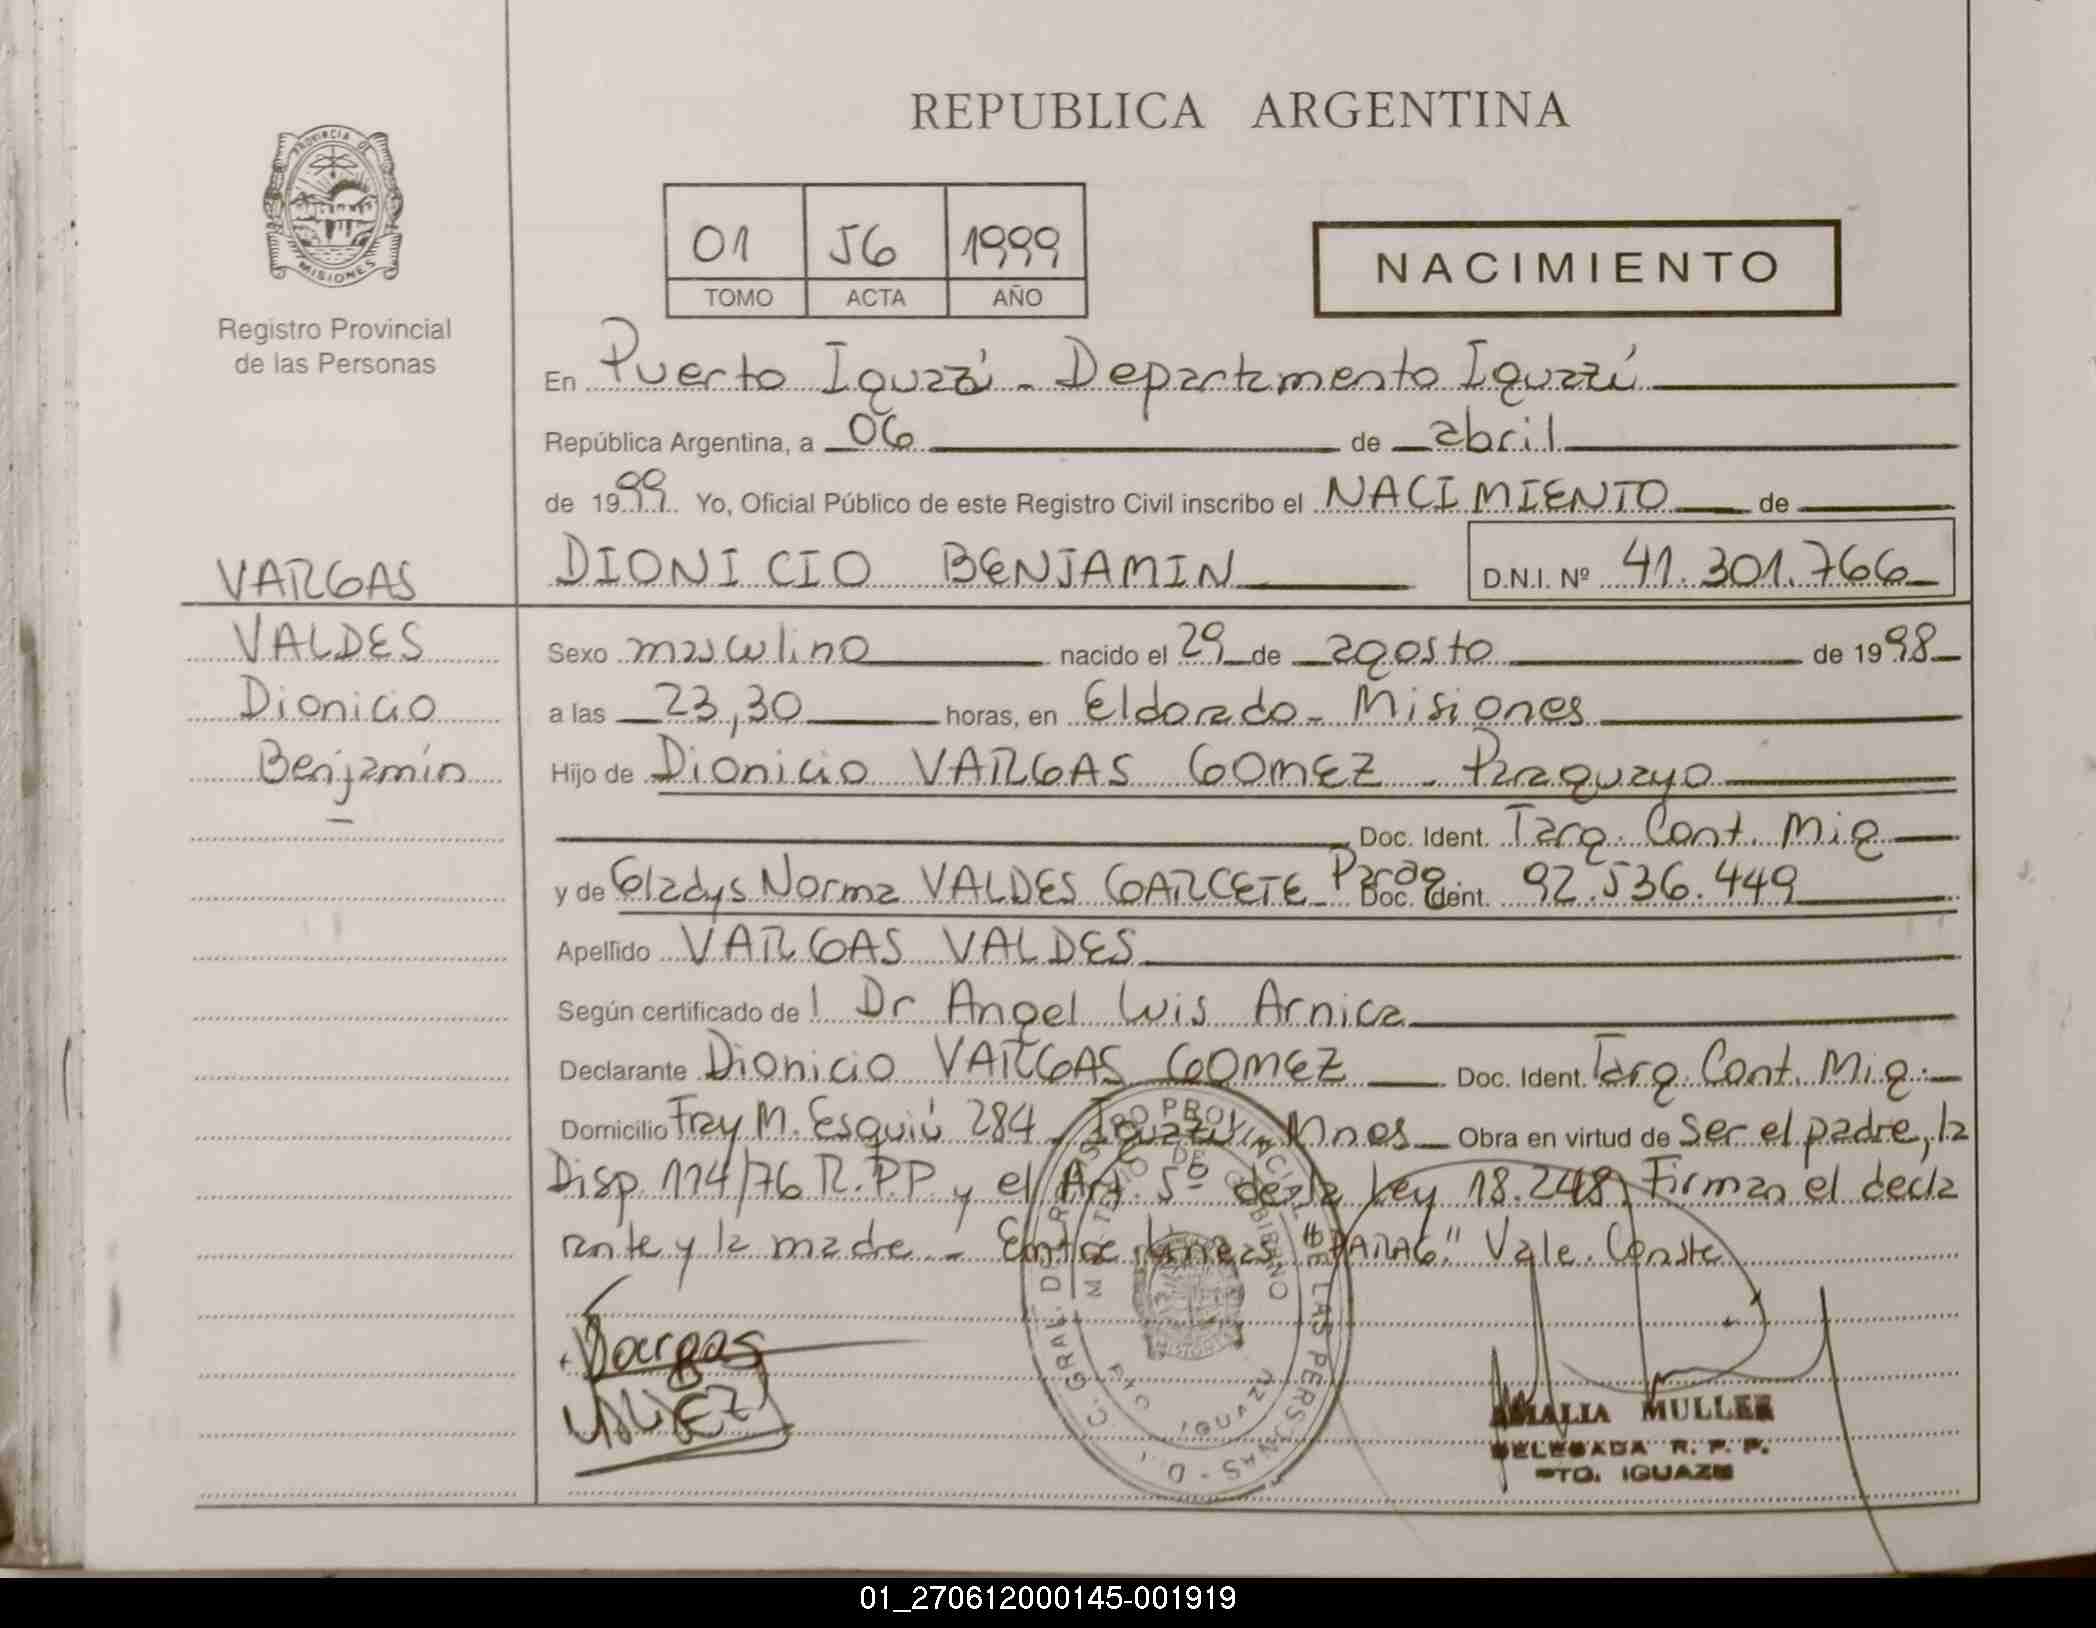 REPUBLICA ARGENTINA
PROVINCIA DE
MISIONES
Registro Provincial
de las Personas
01 56 1999
TOMO ACTA AÑO
NACIMIENTO
En Puerto Iguazú - Departamento Iguazú
República Argentina, a 06 de abril
de 1999 Yo, Oficial Público de este Registro Civil inscribo el NACIMIENTO de
DIONICIO BENJAMIN D.N.I. Nº 41.301.766
VARGAS
VALDES
Dionicio
Benjamín
Sexo masculino nacido el 29 de agosto de 1998
a las 23,30 horas, en Eldorado - Misiones
Hijo de Dionicio VARGAS GOMEZ - Paraguayo
Doc. Ident. Targ. Cont. Mig
y de Gladys Norma VALDES GARCETE Parag. Doc. Ident. 92.536.449
Apellido VARGAS VALDES
Según certificado de l Dr Angel Luis Arnica
Declarante Dionicio VARGAS GOMEZ Doc. Ident. Targ. Cont. Mig.
Domicilio Fray M. Esquiú 284 - Iguazú - Mnes Obra en virtud de Ser el padre, la
Disp. 114/76 R.P.P. y el Art. 5º de la Ley 18.248. Firman el decla
rante y la madre - Entre líneas "PARAG." Vale. Conste
Vargas
AMALIA MULLER
DELEGADA R. P. P.
PTO. IGUAZU
01_270612000145-001919